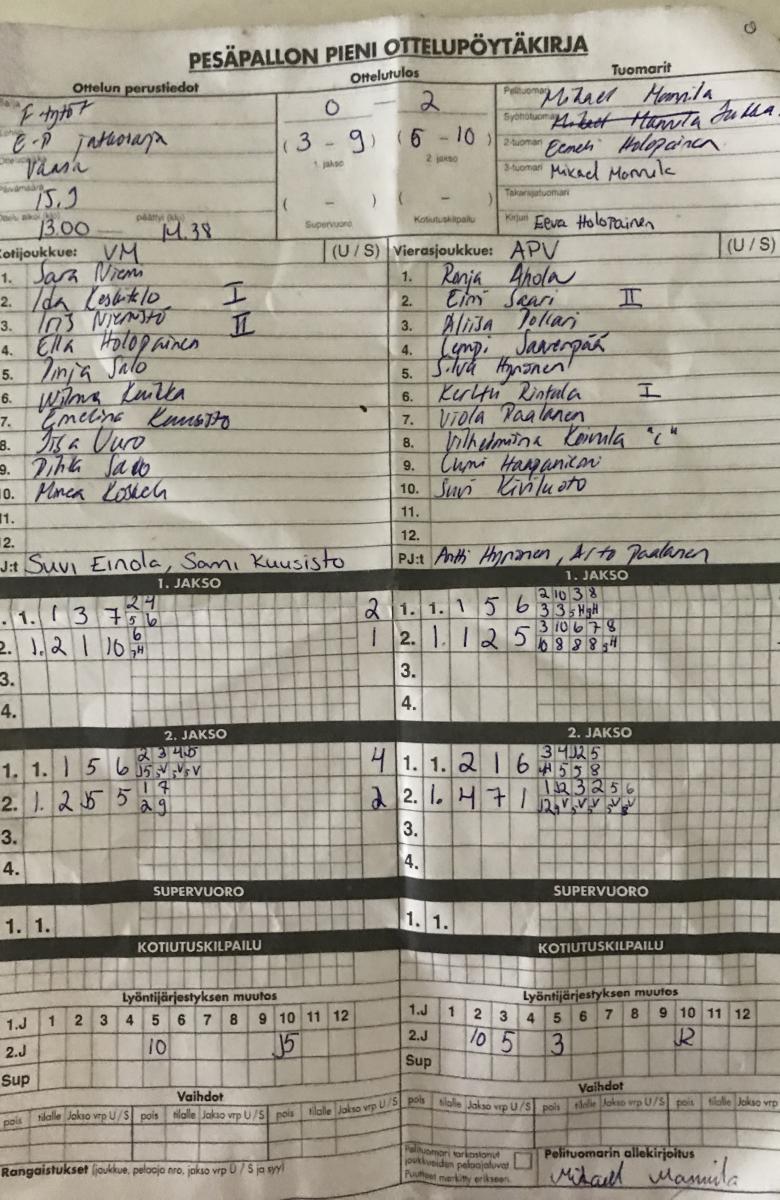 PESÄPALLON PIENI OTTELUPÖYTÄKIRJA
Ottelun perustiedot
Ottelutulos
Tuomarit
F-tytöt
E-P jatkosarja
Vaasa
15.9
13.00 — päättyi (klo) 14.38
0 — 2
(3 - 9) (6 - 10)
1. jakso 2. jakso
( - ) ( - )
Supervuoro Kotiutuskilpailu
Pelituomari Mikael Mannila
Syöttötuomari Jukka
2-tuomari Eemeli Holopainen
3-tuomari Mikael Mannila
Takarajatuomari
Kirjuri Eeva Holopainen
Kotijoukkue: VM (U / S)
1. Sara Niemi
2. Ida I
3. Iris Niemistö II
4. Ella Holopainen
5. Pinja Salo
6. Wilma
7. Emelina Kuusisto
8. Iisa Uuro
9. Salo
10. Minea
11.
12.
PJ:t Suvi Einola, Sami Kuusisto
Vierasjoukkue: APV (U / S)
1. Ronja Ahola
2. Eini Saari II
3. Aliisa
4. Lempi Saarenpää
5. Silva Hynönen
6. Kerttu Rintala I
7. Viola Paalanen
8. Vilhelmiina Koivula "C"
9. Lumi
10. Suvi Kiviluoto
11.
12.
PJ:t Antti Hynönen, Arto Paalanen
1. JAKSO
1. 1. 1 3 7 2 4 2
5 6
2. 1. 2 1 10 6 1
7H
3.
4.
1. JAKSO
1. 1. 1 5 6 2 10 3 8
3 3 5H 9H
2. 1. 1 2 5 3 10 6 7 8
10 8 8 8 9H
3.
4.
2. JAKSO
1. 1. 1 5 6 2 3 4 15 4
15 5V 5V 5V
2. 1. 2 15 5 1 7 2
2 9
3.
4.
2. JAKSO
1. 1. 2 1 6 3 4 12 5
4H 5 5 8
2. 1. 4 7 1 1 12 3 2 5 6
3.
4.
SUPERVUORO
1. 1.
SUPERVUORO
1. 1.
KOTIUTUSKILPAILU
KOTIUTUSKILPAILU
Lyöntijärjestyksen muutos
1.J 1 2 3 4 5 6 7 8 9 10 11 12
2.J 10 15
Sup
Lyöntijärjestyksen muutos
1.J 1 2 3 4 5 6 7 8 9 10 11 12
2.J 10 5 3 12
Sup
Vaihdot
pois tilalle Jakso vrp U / S pois tilalle Jakso vrp U / S pois tilalle Jakso vrp U / S
Vaihdot
pois tilalle Jakso vrp U / S pois tilalle Jakso vrp U / S pois tilalle Jakso vrp
Rangaistukset (joukkue, pelaaja nro, jakso vrp U / S ja syy)
Pelituomari tarkastanut
joukkueiden pelaajaluvat
Puutteet merkitty erikseen.
Pelituomarin allekirjoitus
Mikael Mannila